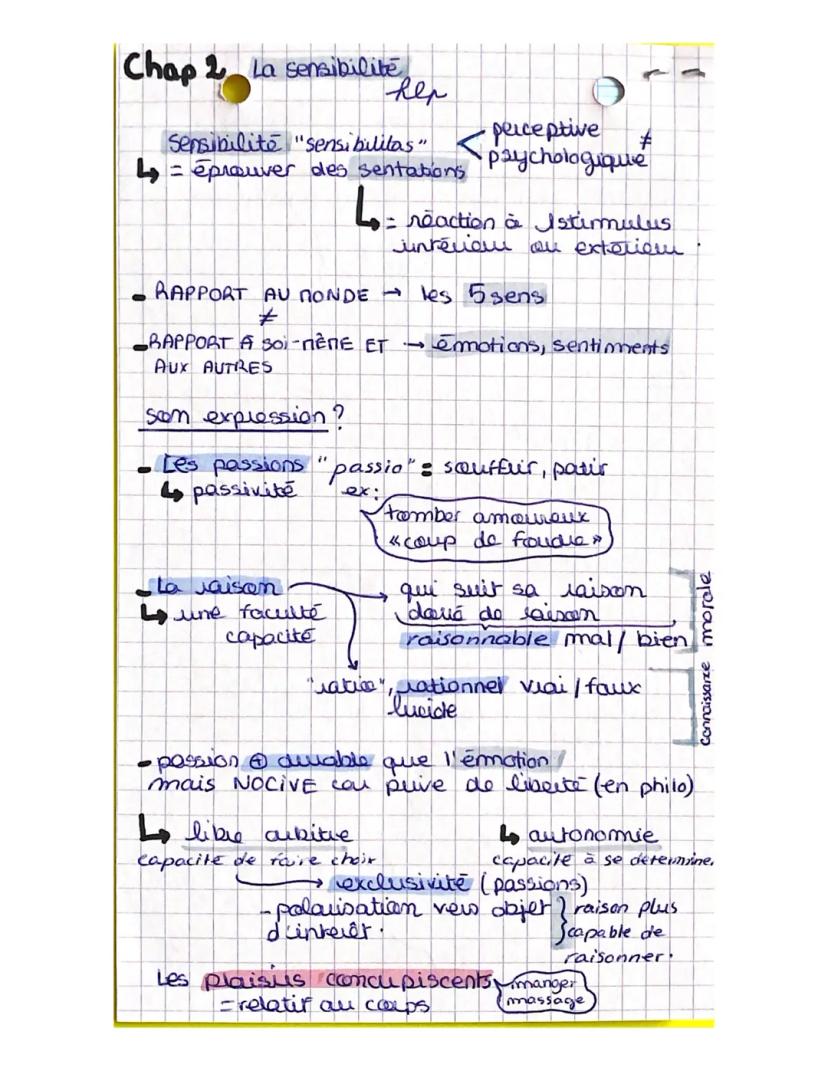 Chap 2 La sensibilité
hlp
sensibilité "sensibilitas" < perceptive ≠ psychologique
↳ = éprouver des sentations
↳ = réaction à 1 stimulus
intérieur ou extérieur.
- RAPPORT AU MONDE → les 5 sens
≠
- RAPPORT À SOI-MÊME ET → émotions, sentiments
AUX AUTRES
son expression ?
- Les passions "passio" = souffrir, patir
↳ passivité ex:
tomber amoureux
«coup de foudre»
- La raison → qui suit sa raison
↳ une faculté doué de raison
capacité raisonnable mal / bien
morale
"ratio", rationnel vrai / faux
lucide
connaissance
- passion ⊕ durable que l'émotion
mais NOCIVE car prive de liberté (en philo)
↳ libre arbitre ↳ autonomie
capacité de faire choix capacité à se déterminer.
→ exclusivité (passions)
- polarisation vers objet } raison plus
d'intérêt. capable de
raisonner.
Les plaisirs concupiscents manger
= relatif au corps massage